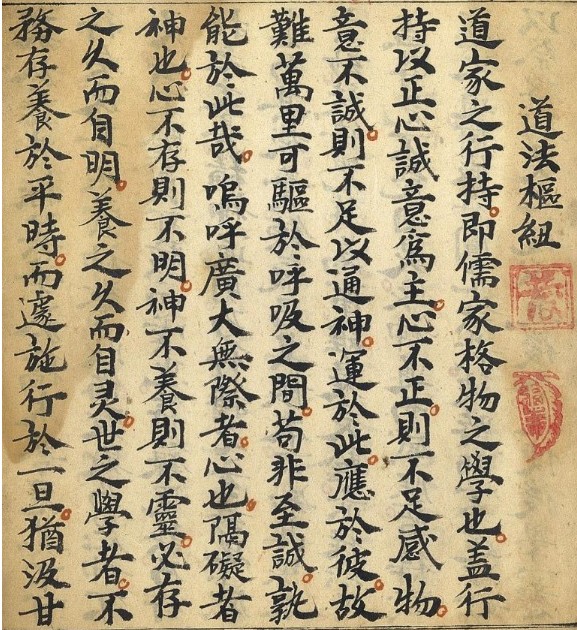 道法樞紐
道家之行持即儒家格物之學也盖行
持以正心誠意爲主心不正則不足感物
意不誠則不足以通神運於此應於彼故
難萬里可驅於呼吸之間苟非至誠孰
能於此哉嗚呼廣大無際者心也隔礙者
神也心不存則不明神不養則不靈必存
之久而自明養之久而自灵世之學者不
務存養於平時而遽施行於一旦猶汲甘